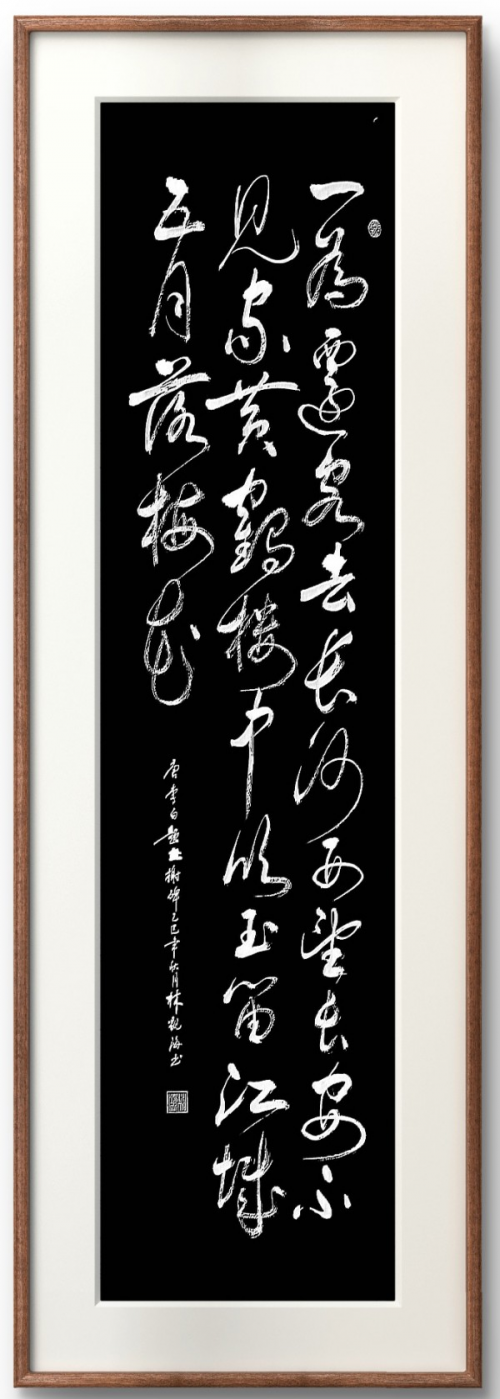 一為遷客去長沙西望長安不
見家黃鶴樓中吹玉笛江城
五月落梅花
唐李白題北榭碑乙巳年秋月林海书